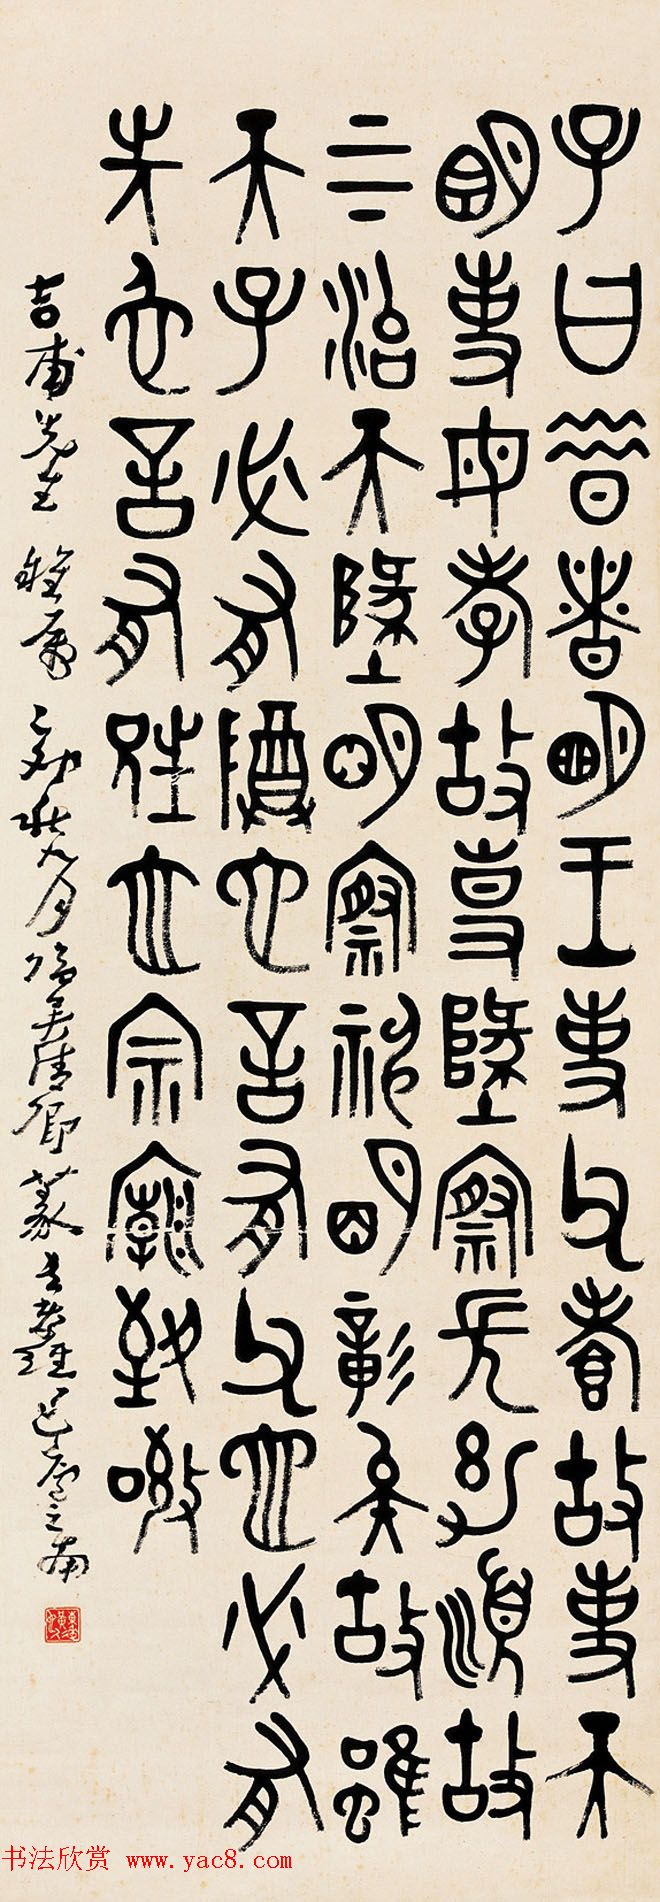 子曰昔者明王事父孝故事天
明事母孝故事墬察長幼順故
上下治天墬明察神明彰矣故雖
天子必有尊也言有父也必有
先也言有兄也宗廟致敬
吉甫先生 雅屬 秋九月臨吳清卿篆書
书法欣赏 www.yac8.com